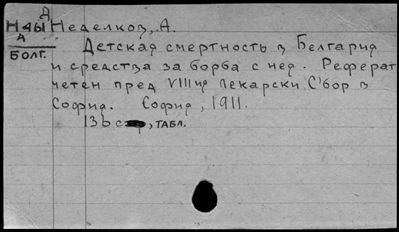 Н461 Неделков, А.
Д
А
БОЛГ.
Детская смертность в Белгария
и средства за борба с нея. Реферат
четен пред VIIIия Лекарски С'бор в
София. София, 1911.
136 стр, ТАБЛ.